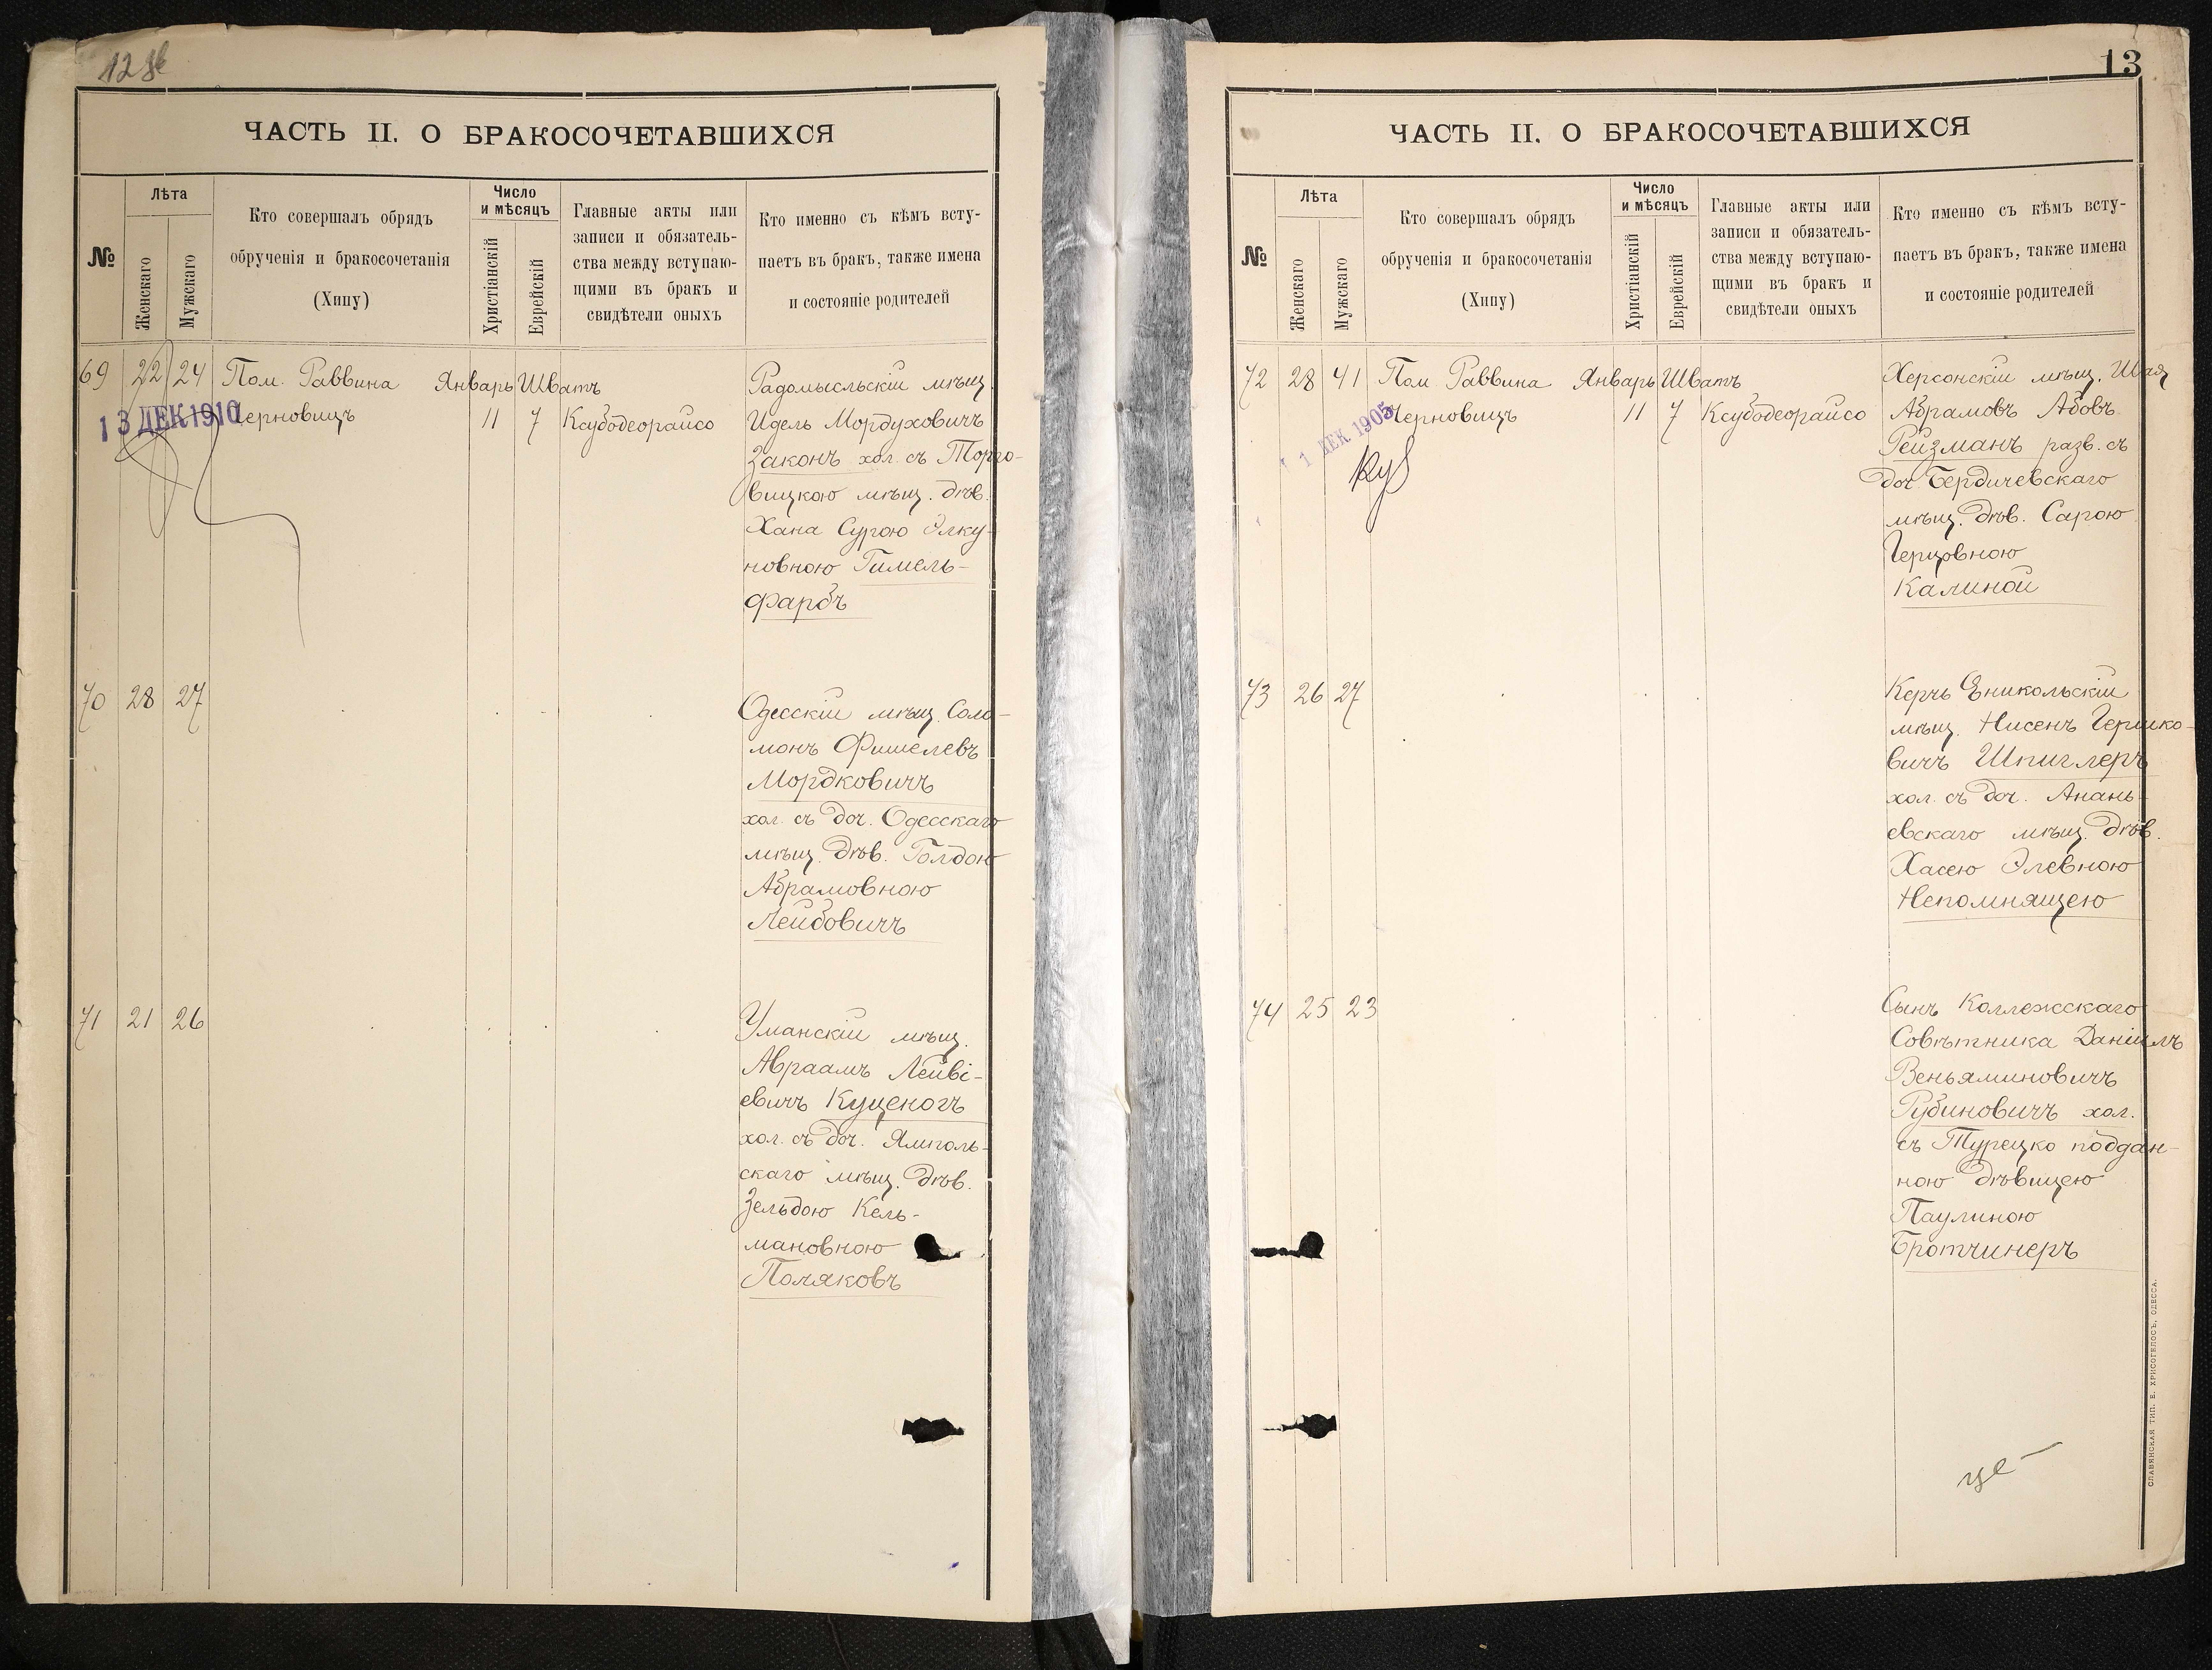 ЧАСТЬ II. О БРАКОСОЧЕТАВШИХСЯ
№
Лѣта
Женскаго
Мужскаго
Кто совершалъ обрядъ
обрученія и бракосочетанія
(Хипу)
Число
и мѣсяцъ
Христіанскій
Еврейскій
Главные акты или
записи и обязатель-
ства между вступаю-
щими въ бракъ и
свидѣтели оныхъ
Кто именно съ кѣмъ всту-
паетъ въ бракъ, также имена
и состояніе родителей
69 22 24 Пом. Раввина Январь Шватъ
13 ДЕК 1910
Черновицъ 11 7 Ксубодеорайсо
Радомысльскій мѣщ.
Идель Мордуховичъ
Законъ хол. съ Торго-
вицкою мѣщ. дѣв.
Хана Сурою Элку-
новною Гимель-
фарбъ
70 28 27
Одесскій мѣщ. Соло-
монъ Фишелевъ
Мордковичъ
хол. съ доч. Одесскаго
мѣщ. дѣв. Голдою
Абрамовною
Лейбовичъ
71 21 26
Уманскій мѣщ.
Авраамъ Лейві-
евичъ Куценогъ
хол. съ доч. Ямполь-
скаго мѣщ. дѣв.
Зельдою Кель-
мановною
Поляковъ
13
ЧАСТЬ II. О БРАКОСОЧЕТАВШИХСЯ
№
Лѣта
Женскаго
Мужскаго
Кто совершалъ обрядъ
обрученія и бракосочетанія
(Хипу)
Число
и мѣсяцъ
Христіанскій
Еврейскій
Главные акты или
записи и обязатель-
ства между вступаю-
щими въ бракъ и
свидѣтели оныхъ
Кто именно съ кѣмъ всту-
паетъ въ бракъ, также имена
и состояніе родителей
72 28 41 Пом. Раввина Январь Шватъ
1 ДЕК 1905
Черновицъ 11 7 Ксубодеорайсо
Херсонскій мѣщ. Шая
Абрамовъ Абовъ
Рейзманъ разв. съ
доч. Бердичевскаго
мѣщ. дѣв. Сарою
Герцовною
Калиной
73 26 27
Керчь Еникольскій
мѣщ. Нисенъ Гершко-
вичъ Шпиглеръ
хол. съ доч. Анань-
евскаго мѣщ. дѣв.
Хасею Элевною
Непомнящею
74 25 23
Сынъ Коллежскаго
Совѣтника Даніилъ
Веньяминовичъ
Рубиновичъ хол.
съ Турецко поддан-
ною дѣвицею
Паулиною
Бротчинеръ
СЛАВЯНСКАЯ ТИП. Е. ХРИСОГЕЛОСЪ, ОДЕССА.